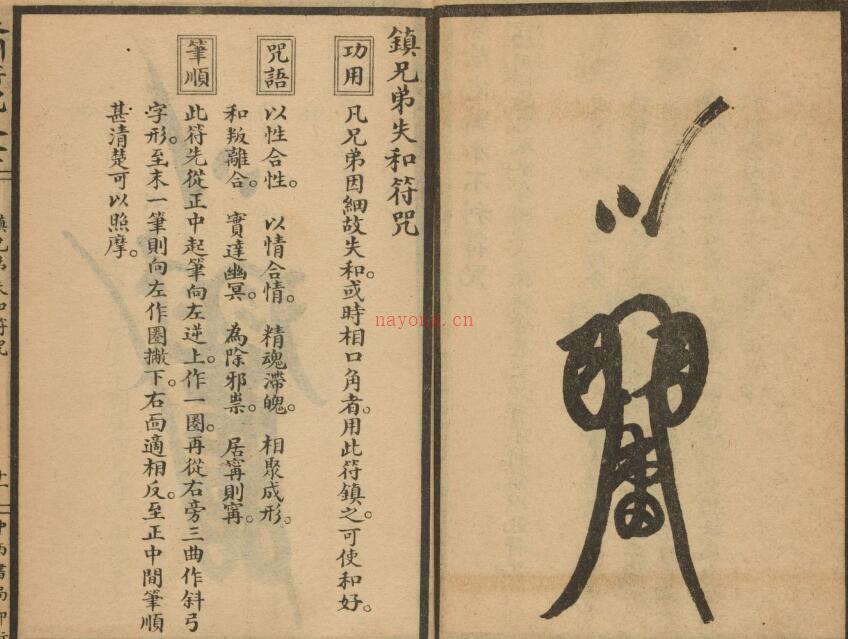 鎮兄弟失和符咒
功用
凡兄弟因細故失和。或時相口角者。用此符鎮之。可使和好。
咒語
以性合性。以情合情。精魂滯魄。相聚成形。
和叛離合。實達幽冥。為除邪祟。居寗則寗。
筆順
此符先從正中起筆向左逆上。作一圈。再從右旁三曲作斜弓
字形。至末一筆則向左作圈撇下。右面適相反。至正中間筆順
甚清楚可以照摩。
鎮兄弟失和符咒
中西書局印行
nayona.cn